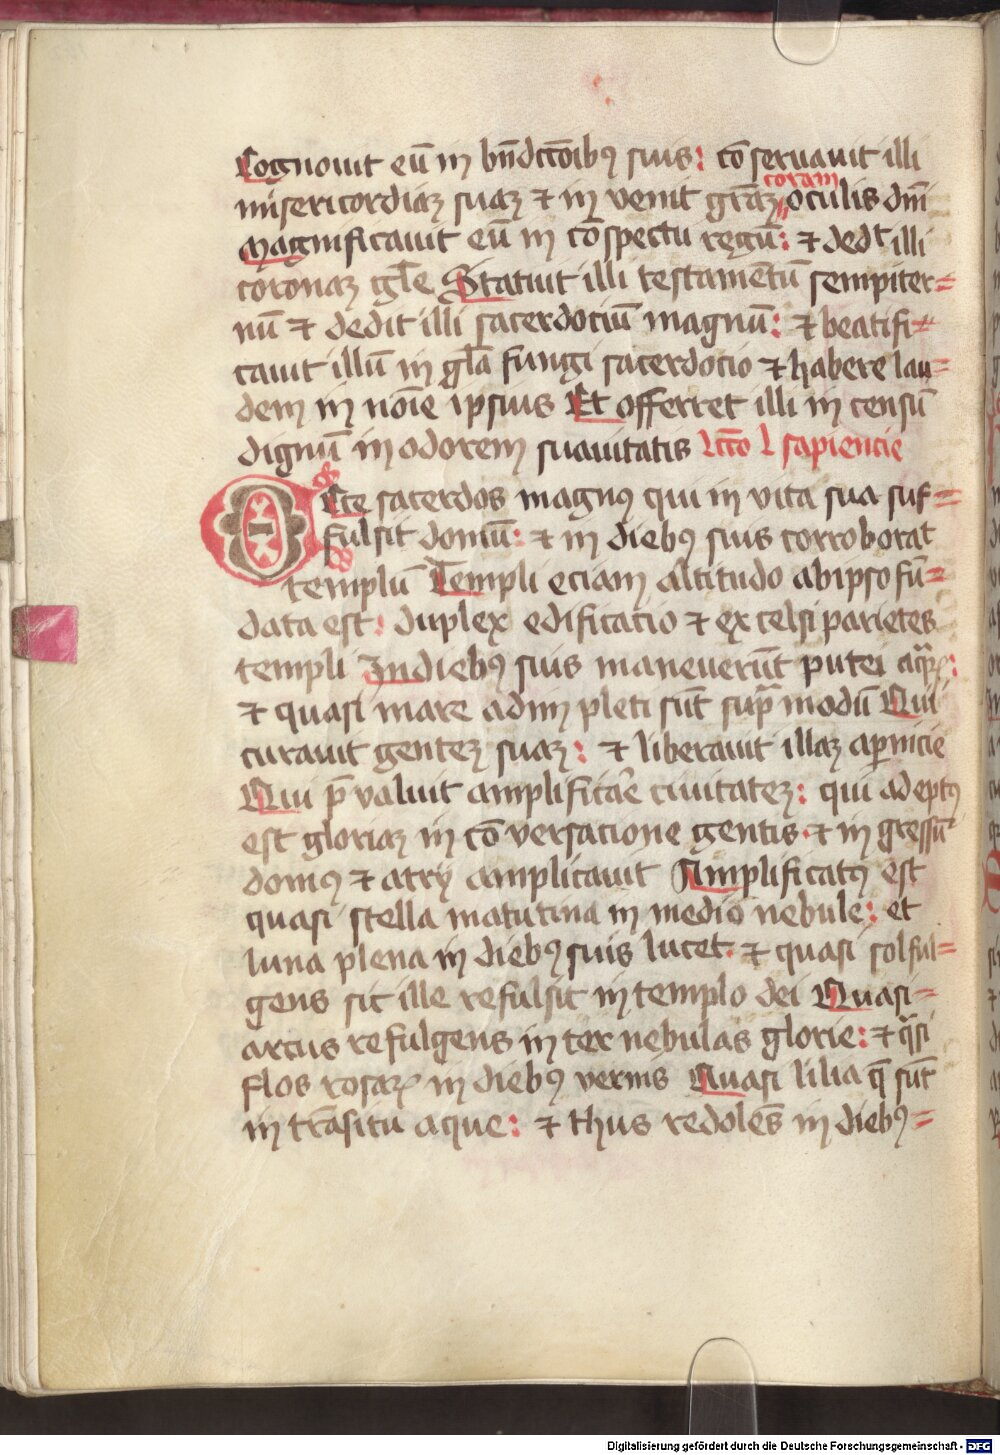 Cognouit eū in bn̄dcc̄oībꝰ suis: cō seruauit illi
misericordiaʒ suaʒ ⁊ in venit grāꝫ coram oculis dnī
Magnificauit eū in cō spectu regū: ⁊ dedᵗ illi
coronaʒ gl̄e Statuit illi testamētū sempiter=
nū ⁊ dedit illi sacerdociū magnū: ⁊ beatifi=
cauit illū in gl̄a fungi sacerdocio ⁊ habere lau=
dem in noīe ipsius Et offerret illi in censū
dignū in odorem suauitatis lcc̄o l sapiencie
Ecce sacerdos magnꝰ qui in vita sua suf=
fulsit domū: ⁊ in diebꝰ suis corroborat
templū Templi eciam altitudo ab ipso fū=
data est: duplex edificacio ⁊ ex celsi parietes
templi In diebꝰ suis maneuerūt putei aqꝝ:
⁊ quasi mare adim pleti sūt sup̄ modū Qui
curauit genteʒ suaʒ: ⁊ liberauit illaʒ a ꝑnicie
Qui p̄ valuit amplificār̄e ciuitateʒ: qui adeptꝰ
est gloriaʒ in cō versacione gentis· ⁊ in gressū
domꝰ ⁊ atrij amplicauit Amplificatꝰ est
quasi stella matutina in medio nebule: et
luna plena in diebꝰ suis lucet· ⁊ quasi sol ful=
gens sic ille refulsit in templo dei Quasi=
arcus refulgens in ter nebulas glorie: ⁊ q̄si
flos rosaꝝ in diebꝰ vernis Quasi lilia q̄ sūt
in trāsitu aque: ⁊ thus redolēs in diebꝰ=
Digitalisierung gefördert durch die Deutsche Forschungsgemeinschaft - DFG